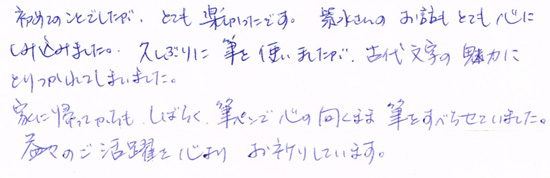 初めてのことでしたが、とても楽しかったです。 景水さんの お話も とても 心に
しみ込みました。 久しぶりに 筆を 使いましたが、古代文字の 魅力に
とりつかれてしまいました。
家に帰ってからも しばらく、筆ペンで 心の 向くまま 筆をすべらせていました。
益々のご活躍を 心より お祈りしています。